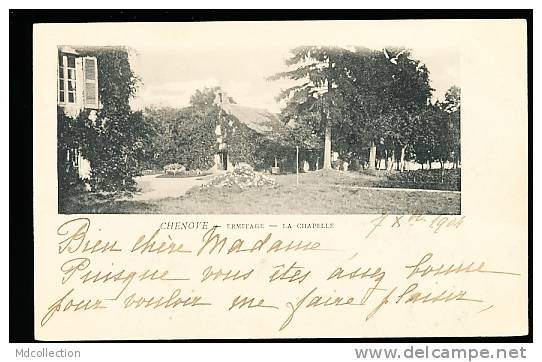 CHENOVE — ERMITAGE — LA CHAPELLE
7 Xbre 1904
Bien chère Madame
Puisque vous êtes assez bonne
pour vouloir me faire plaisir,
Mdcollection
www.delcampe.net